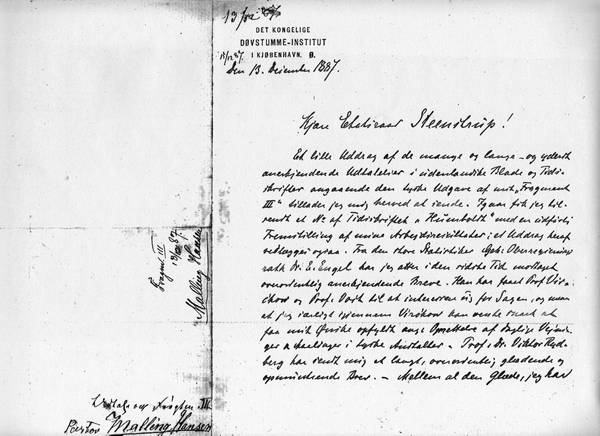 13 fra
DET KONGELIGE
DØVSTUMME-INSTITUT
I KJØBENHAVN. B.
Den 13. December 1887.
Kjære Etatsraad Steenstrup!
Et lille Uddrag af de mange og lange - og yderst
anerkjendende Udtalelser i udenlandske Blade og Tids-
skrifter angaaende den tydske Udgave af mit „Fragment
III“ tillader jeg mig herved at sende. Igaar fik jeg til-
sendt et Nr af Tidsskriftet „Humboldt“ med en udførlig
Fremstilling af mine Arbejdsresultater, et Uddrag heraf
vedlægges ogsaa. Fra den store Statistiker Geh. Oberregierungs-
rath Dr. E. Engel har jeg atter i den sidste Tid modtaget
overordentlig anerkjendende Breve. Han har faaet Prof. Vir-
chow og Prof. Voit til at interessere sig for Sagen, og mener
at jeg særligt gjennem Virchow kan vente snart at
faa mit Ønske opfyldt ang. Oprettelse af daglige Vejnin-
ger & Maalinger i tydske Anstalter. Prof. Dr. Viktor Ryd-
berg har sendt mig et langt, overordentlig glædende og
opmuntrende Brev. — Mellem al den Glæde, jeg har
Fragm. III
13/12 87
Malling Hansen
Pastor Malling Hansen